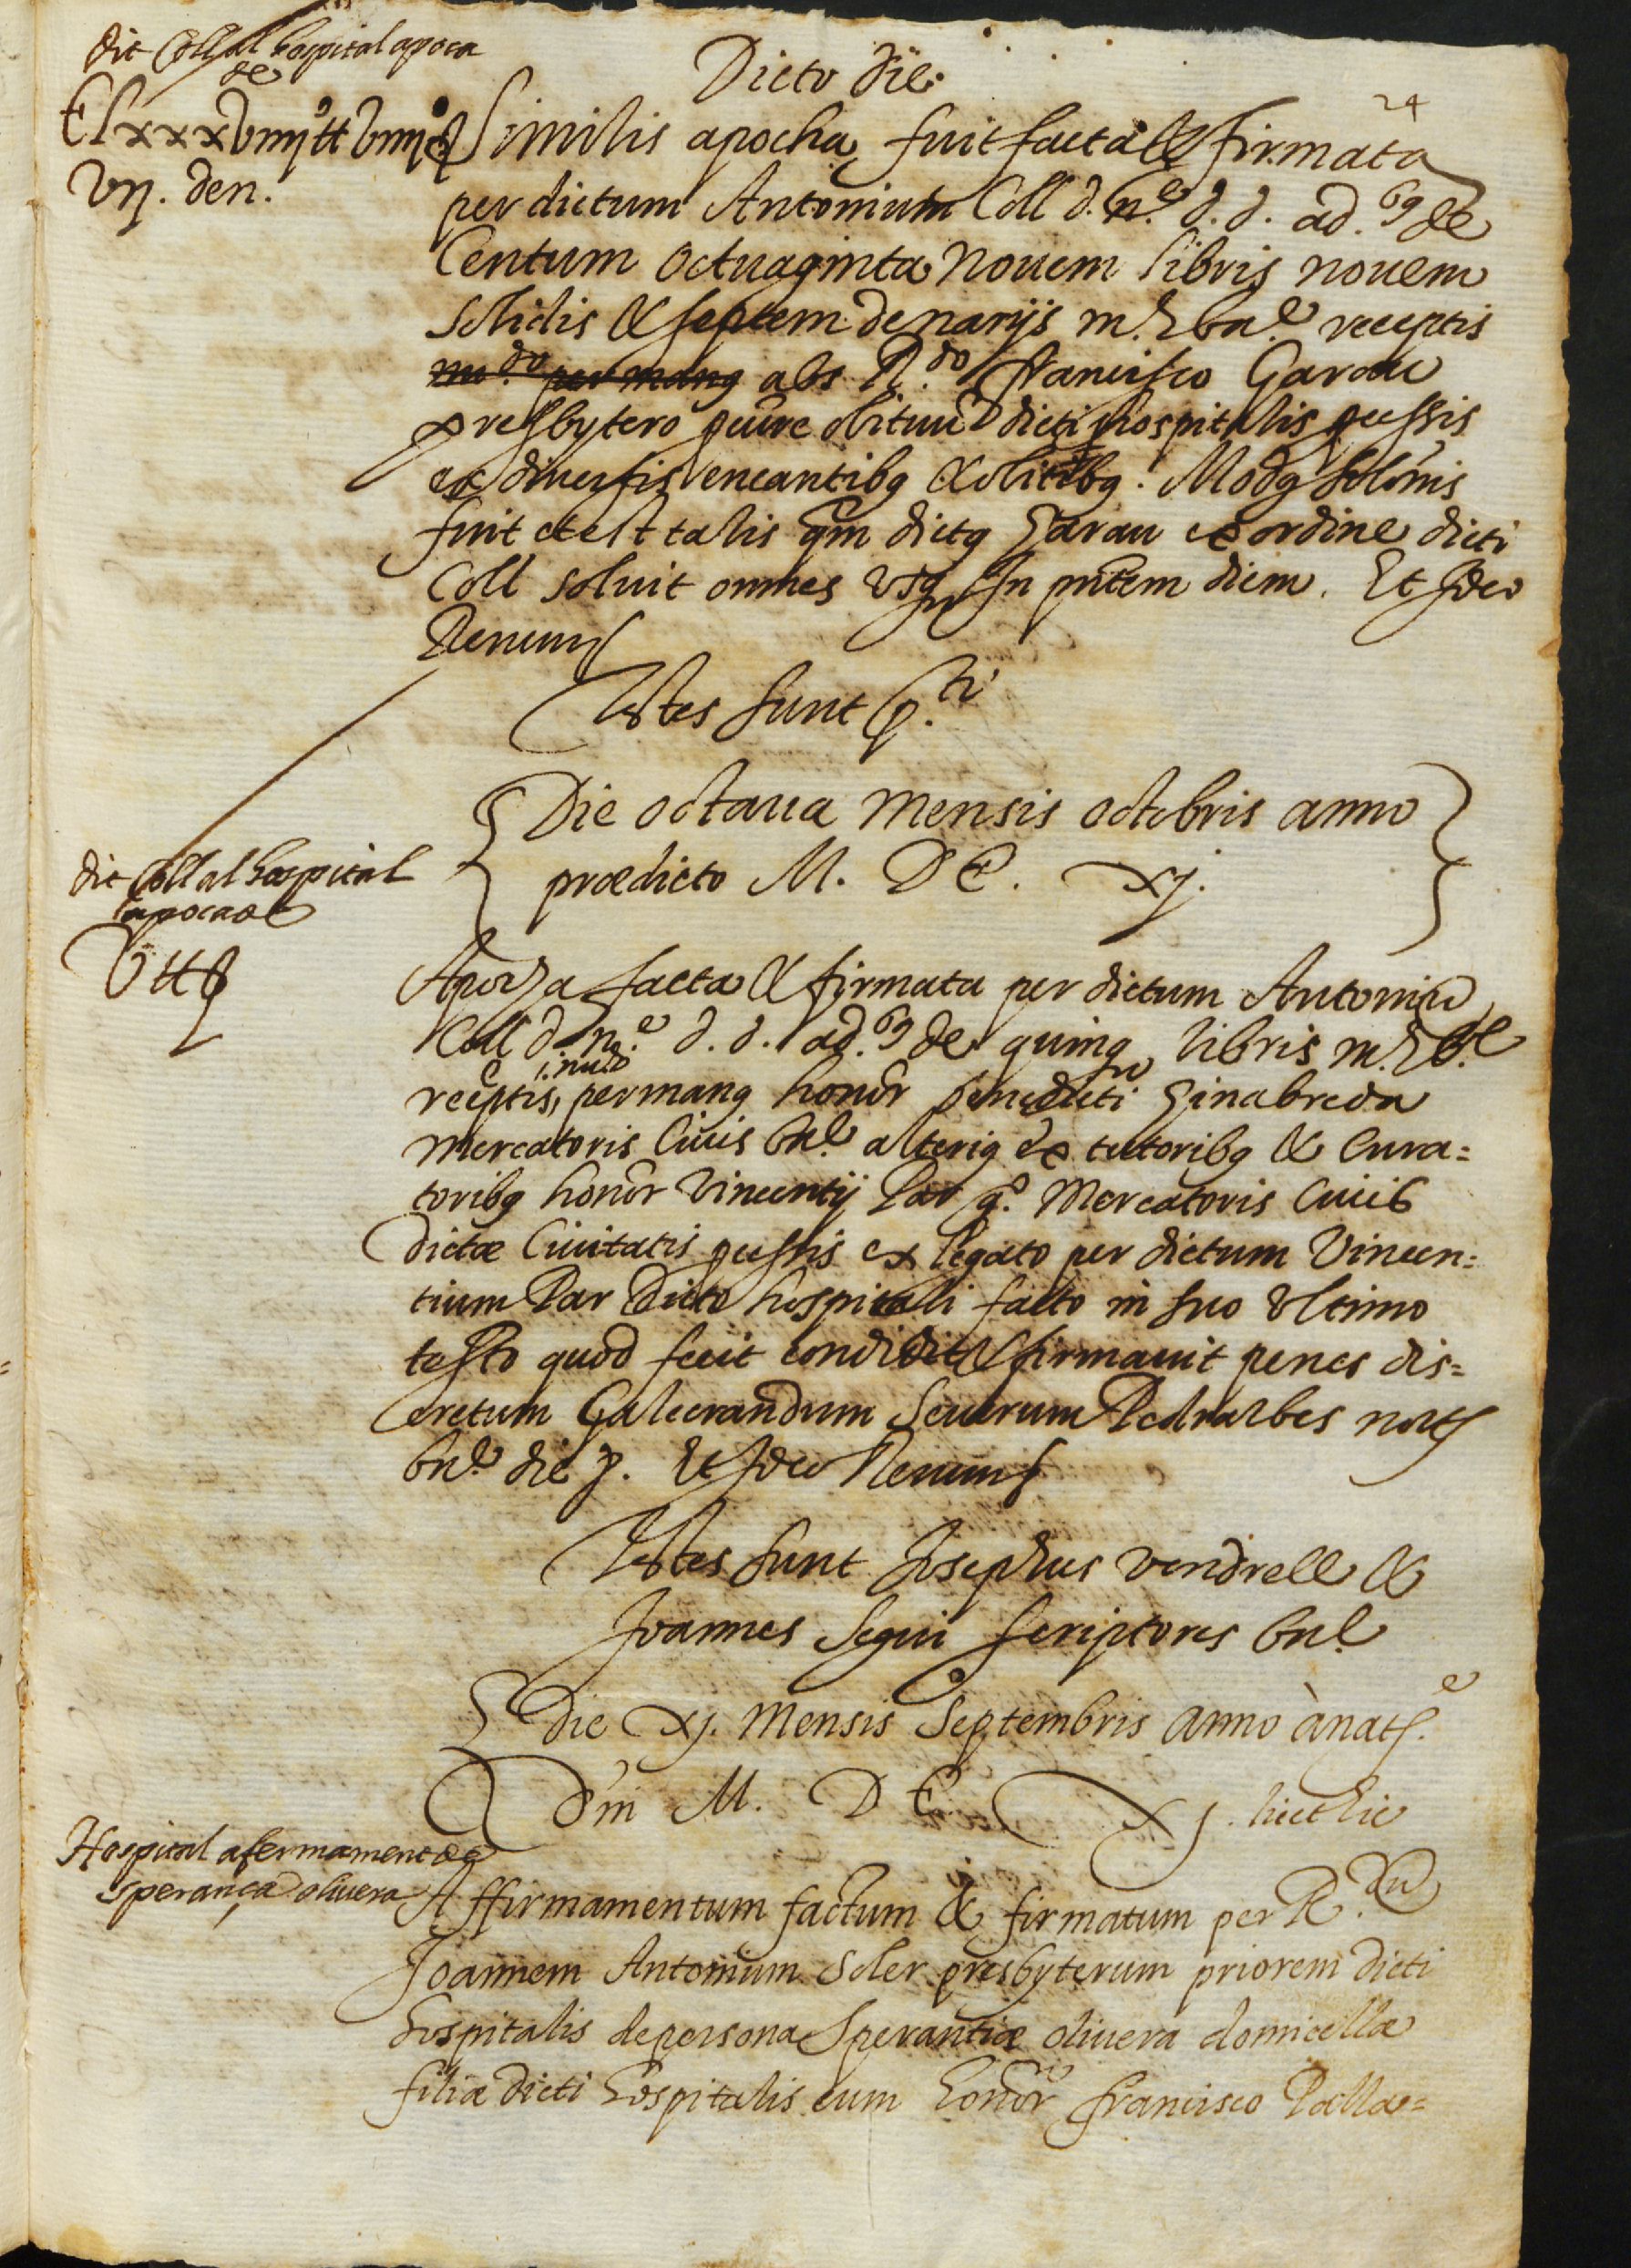 dit Coll al hospital apoca
de
Clxxxviiij ₶ viiij ß
vij. den.
Dicto die.
24
Similis apocha fuit facta & firmata
per dictum Antonium Coll d. n.e d. d. ad.os de
Centum octuaginta novem libris novem
solidis & septem denarijs m. bae receptis
abs R.do Francisco Garau
presbytero obituũ dicti hospitalis
ex diversis vencantibꝯ & solutibꝯ. Modꝯ solõnis
fuit et est talis qm̃ dictꝯ Garau ex ordine dicti
Coll soluit omnes usq. In pñtem diem. Et Ideo
Renun
Testes sunt p.ti
Die octaua mensis octobris anno
prædicto M. DC. xj.
dit Coll al hospital
apoca de
v ₶
Apocha facta & firmata per dictum Antoniũ
Coll d. n.e d. d. ad.os de quinq. libris m. b.e
receptis, per manꝯ honor Benedicti Ginabreda
mercatoris Ciuis bñe alteriꝯ ex tutoribꝯ & Cura=
toribꝯ honor Vincentij Par q.o Mercatoris Ciuis
dictæ Ciuitatis ex legato per dictum Vincen=
tium Par dicto hospitali facto in suo ultimo
testo quod fecit condidit & firmauit penes dis=
cretum Galcerandum Seuerum Pedralbes notꝭ
bñe die p. Et Ideo Renun
Testes sunt Josephus Vendrell &
Joannes Segui scriptores bñe
Die xj. mensis Septembris anno à nat.e
Dñi M. DC. xj. licet hic
Hospital afermament de
sperança oliuera
Affirmamentum factum & firmatum per R.dum
Joannem Antonium Soler presbyterum priorem dicti
hospitalis de persona Sperantiæ oliuera domicellæ
filiæ dicti hospitalis cum honor Francisco Palla=